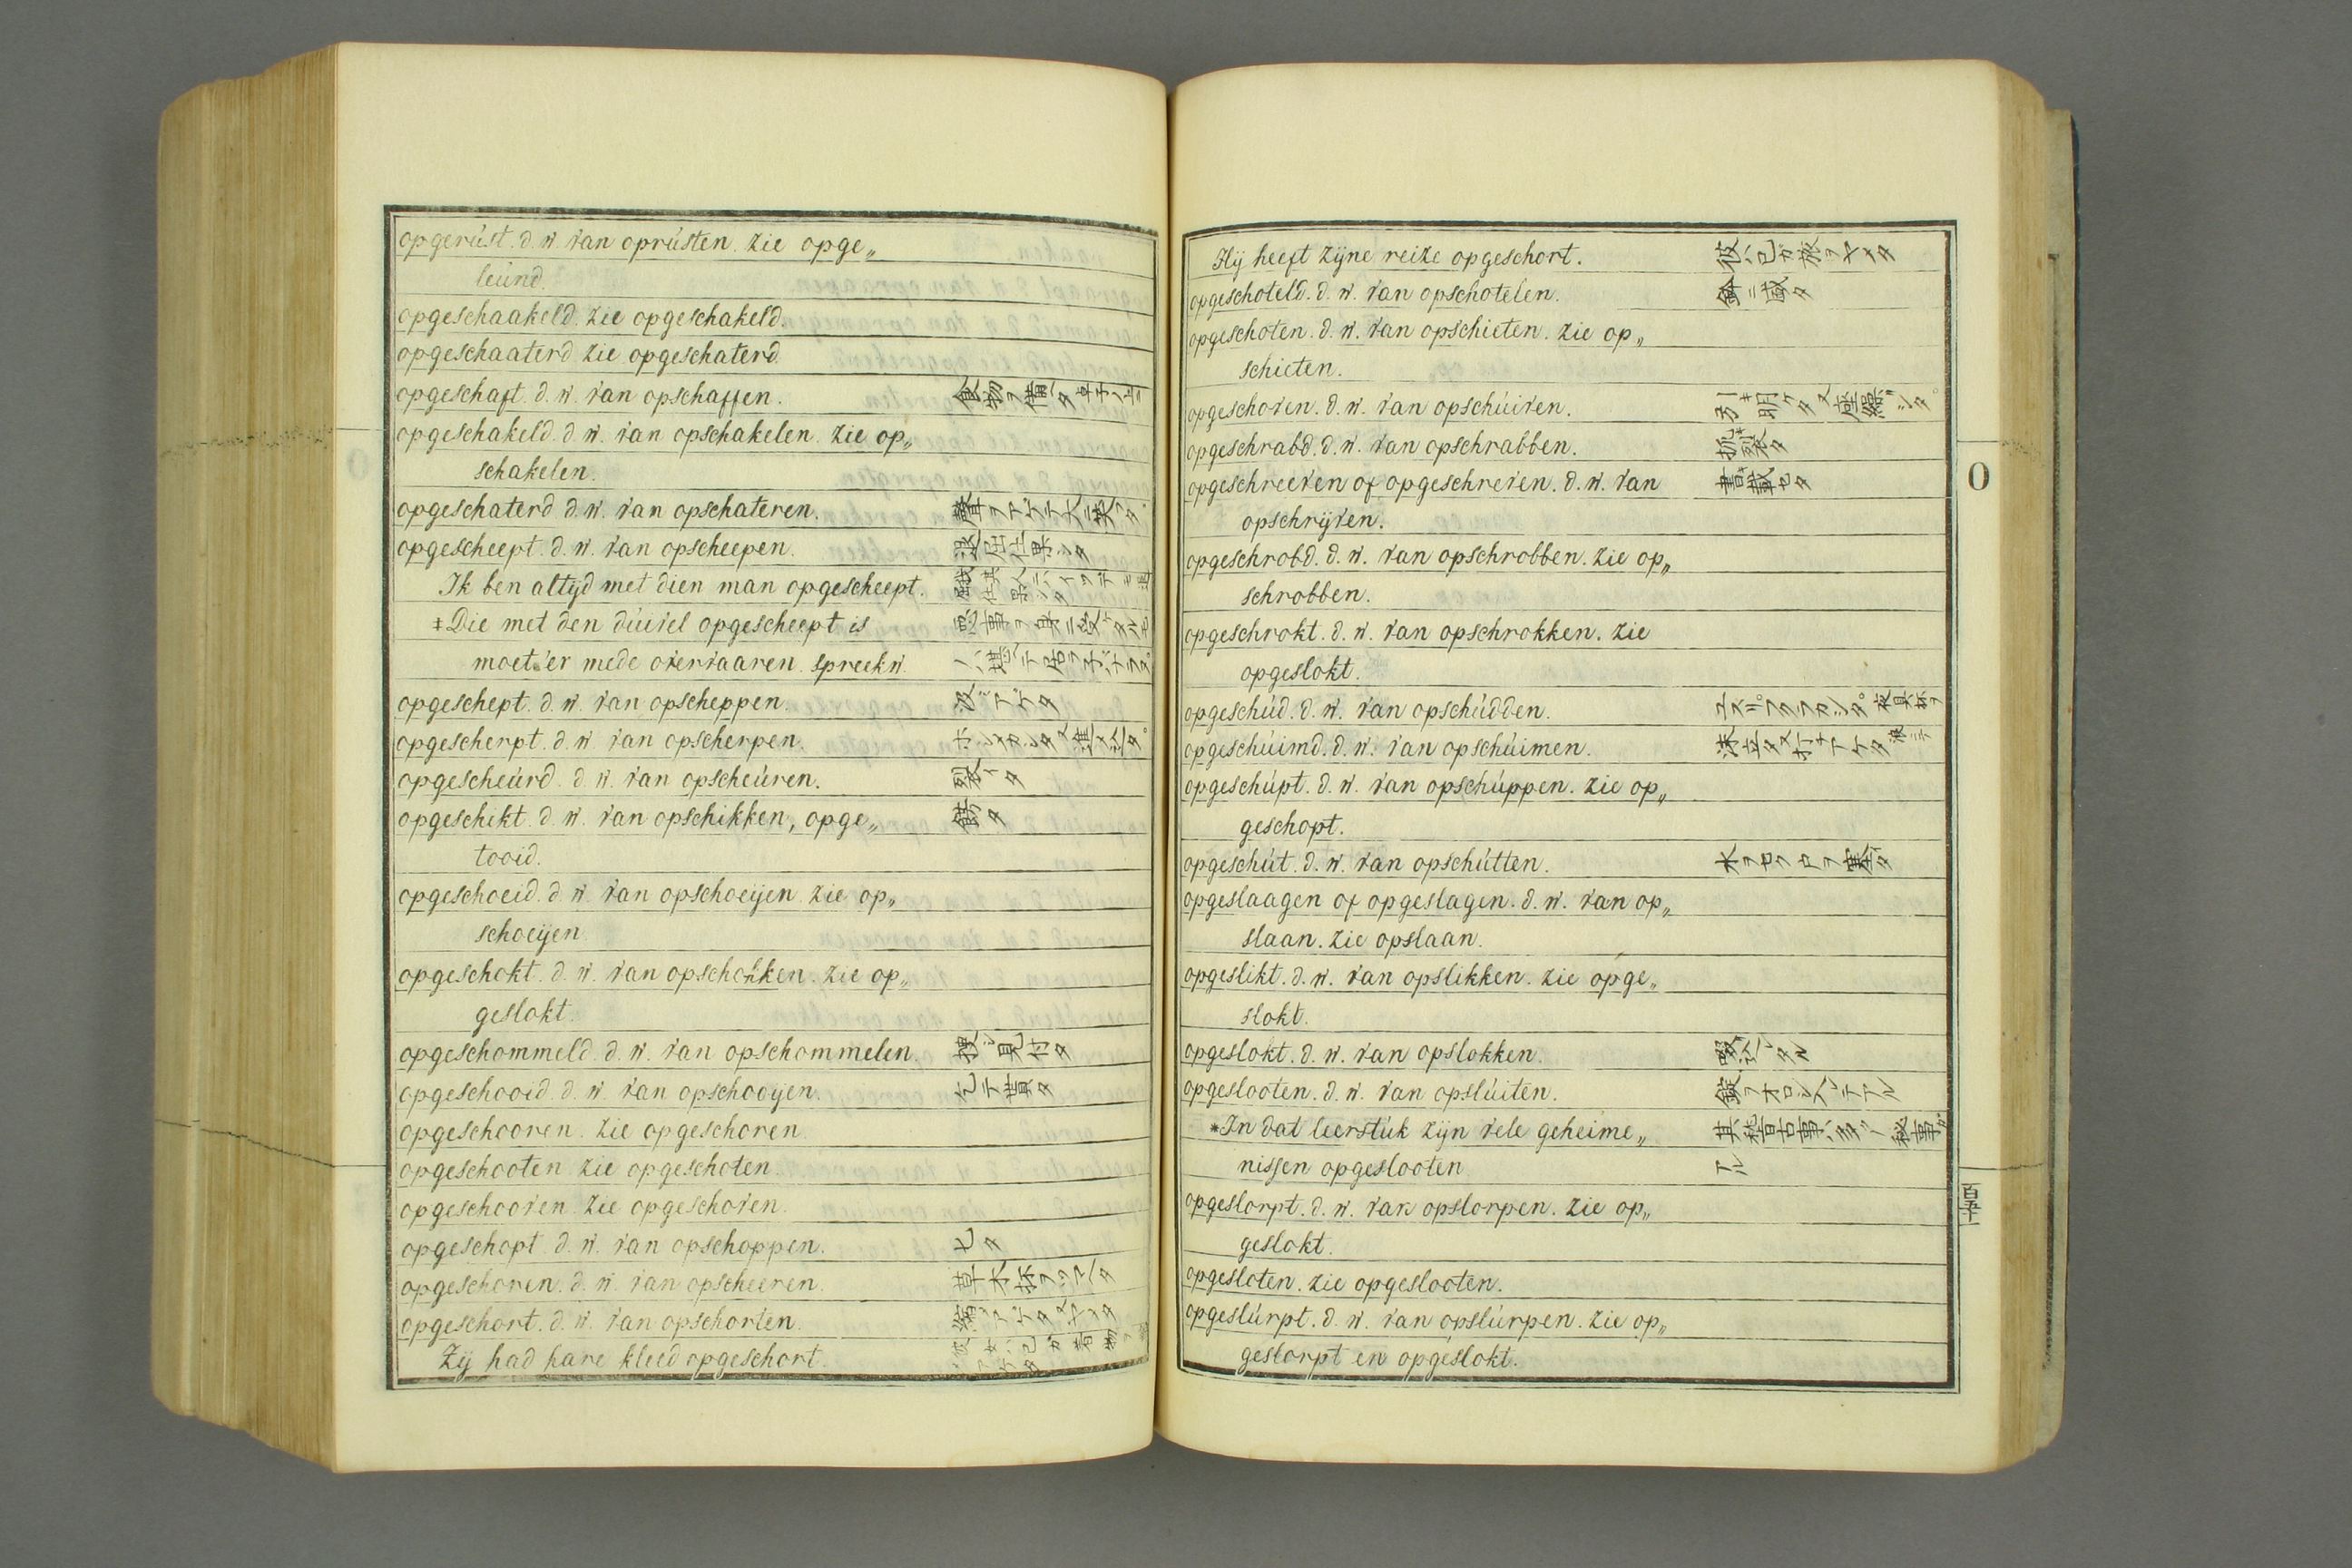 opgerúst. d. w. van oprústen. zie opge„
leúnd.
opgeschaakeld. zie opgeschakeld.
opgeschaaterd zie opgeschaterd.
opgeschaft. d. w. van opschaffen. 食物ヲ備タ
opgeschakeld. d. w. van opschakelen. zie op„
schakelen.
opgeschaterd d. w. van opschateren. 聲ヲアゲテ大ニ笑フタ
opgescheept. d. w. van opscheepen. 退屈仕果シタ
Ik ben altyd met dien man opgescheept.
‡Die met den dúivel opgescheept is
moet er mede overvaaren. spreekw.
opgeschept. d. w. van opscheppen. 汲アゲタ
opgescherpt. d. w. van opscherpen.
opgescheúrd. d. w. van opscheúren. 裂イタ
opgeschikt. d. w. van opschikken, opge„ 餝タ
tooid.
opgeschoeid. d. w. van opschoeijen. zie op„
schoeijen.
opgeschokt. d. w. van opschokken. zie op„
geslokt.
opgeschommeld. d. w. van opschommelen. 捜シ見付タ
opgeschooid. d. w. van opschooijen. 乞テ貰タ
opgeschooren. zie opgeschoren.
opgeschooten zie opgeschoten.
opgeschooven. zie opgeschoven.
opgeschopt. d. w. van opschoppen.
opgeschoren. d. w. van opscheeren. 草木抔ヲツマンタ
opgeschort. d. w. van opschorten.
Zij had hare kleed opgeschort.
Hij heeft zijne reize opgeschort. 彼ハ己ガ旅ヲヤメタ
opgeschoteld. d. w. van opschotelen. 鉢ニ盛タ
opgeschoten. d. w. van opschieten. zie op„
schieten.
opgeschoven. d. w. van opschúiven.
opgeschrabd. d. w. van opschrabben. 抓裂タ
opgeschreeven of opgeschreven. d. w. van 書載セタ
opschrijven.
opgeschrobd. d. w. van opschrobben. zie op„
schrobben.
opgeschrokt. d. w. van opschrokken. zie
opgeslokt.
opgeschúd. d. w. van opschúdden.
opgeschúimd. d. w. van opschúimen.
opgeschúpt. d. w. van opschúppen. zie op„
geschopt.
opgeschút. d. w. van opschútten. 水ヲセク戸ヲ塞タ
opgeslaagen of opgeslagen. d. w. van op„
slaan. zie opslaan.
opgeslikt. d. w. van opslikken. zie opge„
slokt.
opgeslokt. d. w. van opslokken.
opgeslooten. d. w. van opslúiten. 錠ヲオロシテアル
*In dat leerstúk zijn vele geheime„ 其稽古事ハ多クノ秘事ガ
nissen opgeslooten アル
opgeslorpt. d. w. van opslorpen. zie op„
geslokt.
opgesloten. zie opgeslooten.
opgeslúrpt. d. w. van opslúrpen. zie op„
geslorpt en opgeslokt.
O